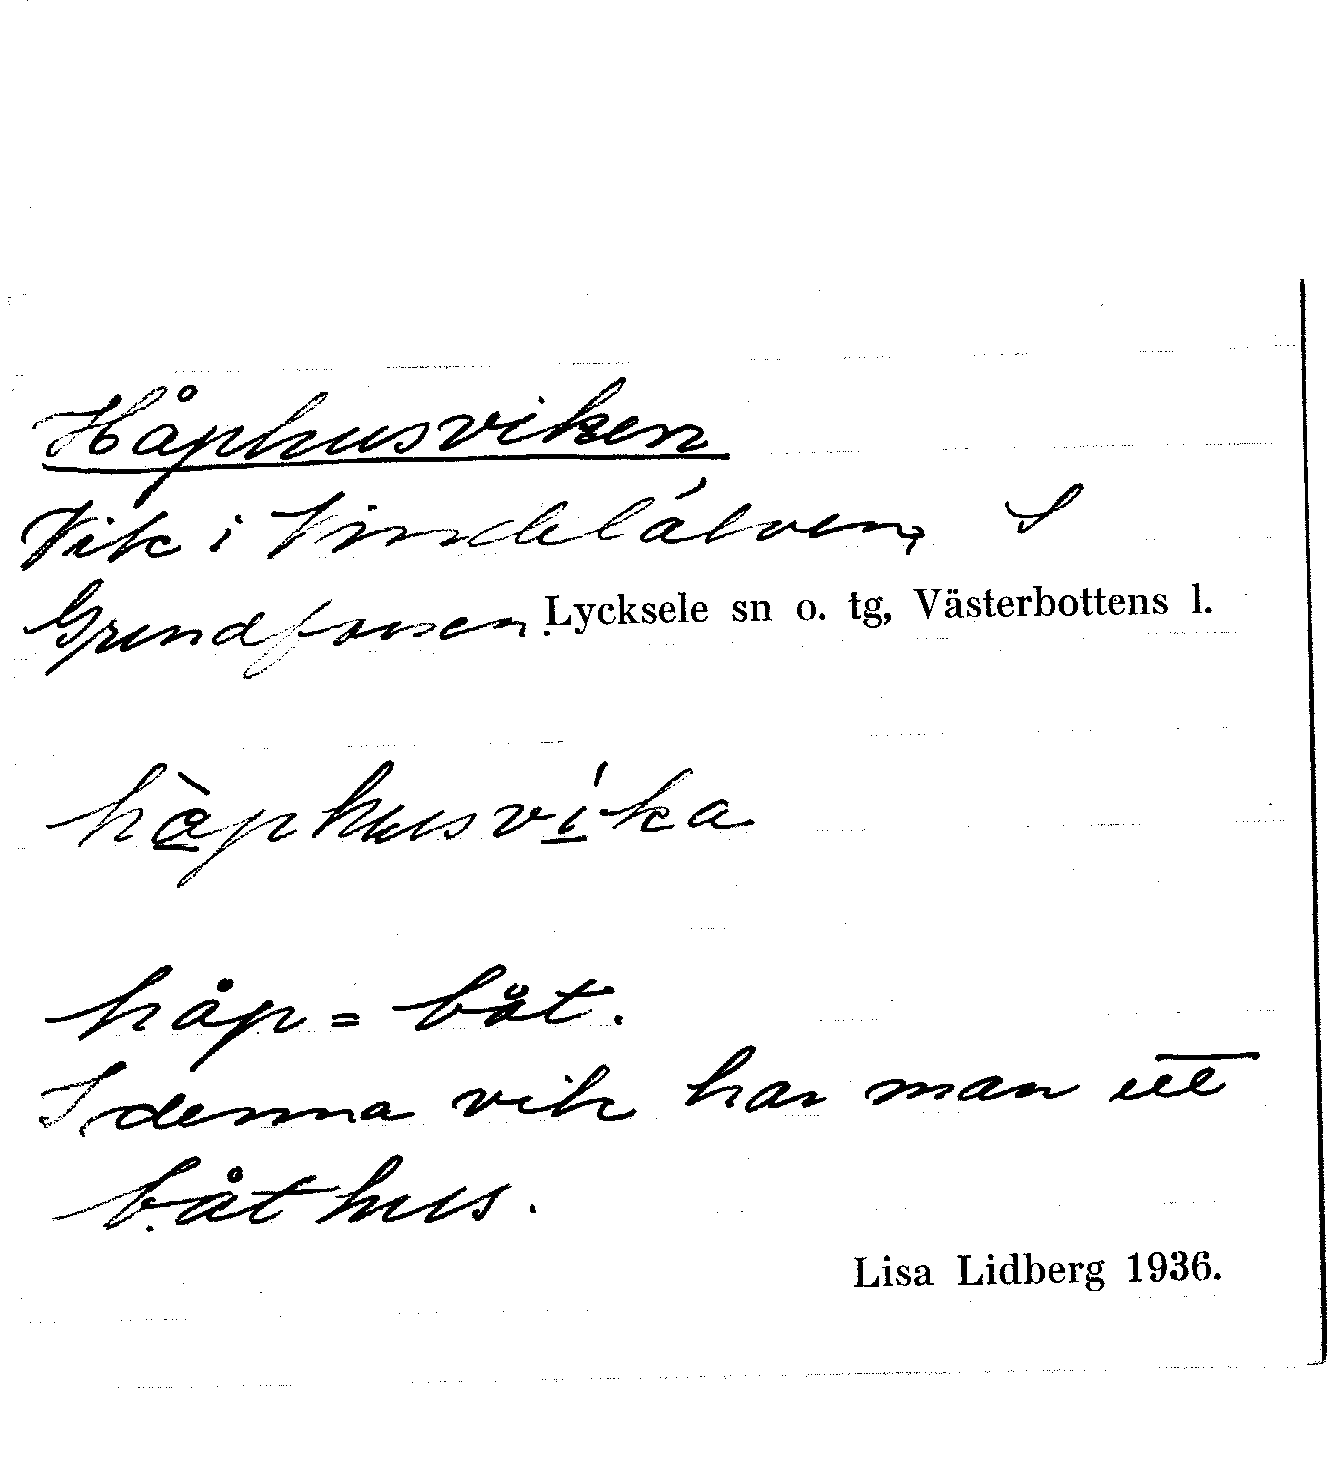 Håphusviken
Vik i Vindelälven, S
Grundforsen. Lycksele sn o. tg, Västerbottens l.
hà̱phusví̱ka
håp = båt.
I denna vik har man ett
båthus.
Lisa Lidberg 1936.